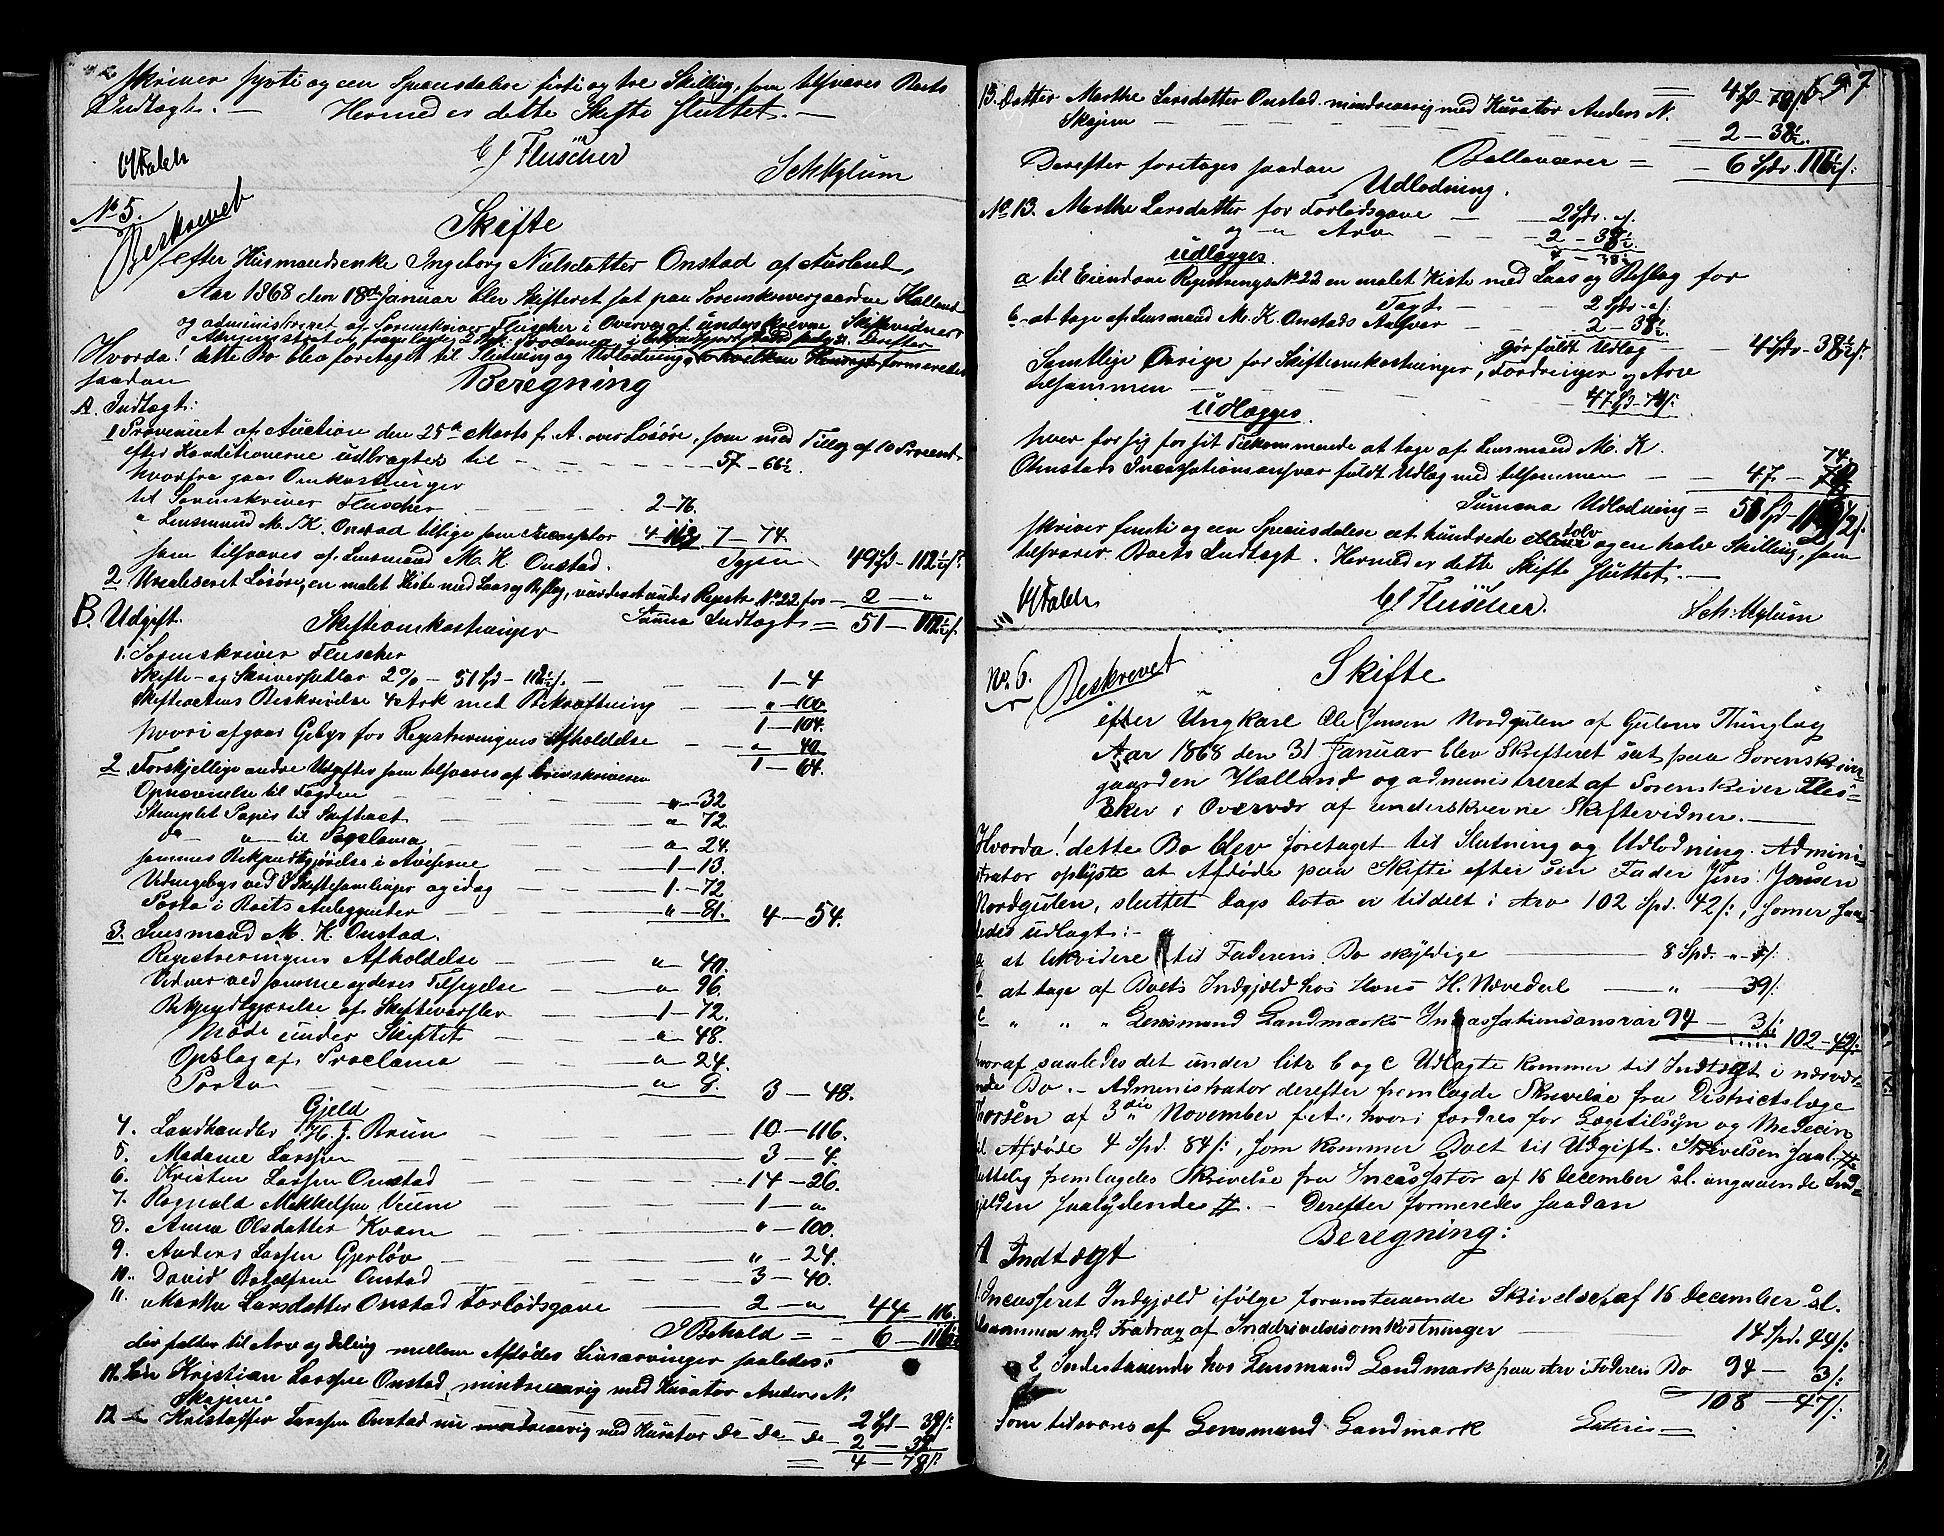 skriver førti og een Speciesdaler førti og tre Skilling, som tilsvares Boets
Indtægt. — Hermed er dette Skifte sluttet. —
C Fleischer
No 5.
Beskrevet
Skifte
efter Huusmandsenke Ingeborg Nielsdatter Onstad af Aurland,
Aar 1868 den 18de Januar blev Skifteret sat paa Sorenskrivergaarden Halland
og administreret af Sorenskriver Fleischer i Overvær af underskrevne Skiftevidner
Hvorda! dette Bo blev foretaget til Slutning og Udlodning formeredes
saadan
Beregning
A. Indtægt:
1 Provenuet af Auction den 25de Marts f. A. over Løsøre, som med Tillæg af 10 Procent
efter Konditionerne udbragtes til — 57 — 66½
hvorfra gaar Omkostninger
til Sorenskriver Fleischer — 2 — 76.
" Lensmand M. K. Onstad tillige som Incassator 4 — 118. 7 — 74.
som tilsvares af Lensmand M. K. Onstad. Igjen 49 Spd — 112½ s:
2 Urealiseret Løsøre, en malet Kiste med Laas og Beslag, vurderet under Registr. No 22 for — 2 — "
Summa Indtægt = 51 — 112½ s:
B. Udgift. Skifteomkostninger
1. Sorenskriver Fleischer
Skifte- og Skriversportler 2% — 51 Spd — 112½ s: — 1 — 4
Skifteactens Beskrivelse 4 Ark med Bekræftning — " — 100
1 — 104.
hvori afgaar Gebyr for Registreringens Afholdelse — " — 40
1 — 64.
2 Forskjellige andre Udgifter som tilsvares af Sorenskriveren
Opnævnelse til Fogden — " — 32
Stemplet Papir til Skifteact — " — 72
do " til Proclama — " — 24.
sammes Bekjendtgjørelse i Aviserne — 1 — 13.
Vidnegebyr ved 3 Skiftesamlinger og idag — 1 — 72
Porto i Boets Anliggender — " — 81. 4 — 54.
3. Lensmand M. K. Onstad.
Registreringens Afholdelse — " — 40.
Vidner ved samme og deres Tilsigelse — " — 96.
Bekjendtgjørelse af Skiftevarsler — 1 — 72.
Møde under Skiftet — " — 48.
Opslag af Proclama — " — 24.
Porto — " 8. 3 — 48.
Gjeld
4. Landhandler H. J. Brun — 10 — 116.
5. Madame Larsen — 3 — 4.
6. Kristen Larsen Onstad — 14 — 26.
7. Rognald Mikkelsen Veum — 1 — "
8. Anna Olsdatter Kvam — " — 100.
9. Anders Larsen Gjerløv — " — 24.
10. David Botolfsen Onstad — 3 — 40.
11. Marthe Larsdatter Onstad Forlodsgave — 2 — " 44 — 116.
Behold = 6 — 116½
der falder til Arv og Deling mellem Afdødes Livsarvinger saaledes:
11. Søn Kristian Larsen Onstad, mindreaarig med Kurator Anders N.
Skajem — 2 Spd — 39 s:
12 — Kristoffer Larsen Onstad mindreaarig med Kurator Do Do — do — 2 — 39
4 — 78 s:
697
4 Spd — 78 s:
13. Datter Marthe Larsdatter Onstad mindreaarig med Kurator Anders N.
Skajem — 2 — 38½
Ballancerer = 6 Spdr. 116½ s:
Derefter foretages saadan
Udlodning.
No 13. Marthe Larsdatter for Forlodsgave — 2 Spdr. " s.
og " Arv — 2 — 38½
4 — 38½
udlægges
a til Eiendom Registrerings No 22 en malet Kiste med Laas og Beslag for
Taxt — 2 Spdr " s:
b. at tage af Lensmand M. K. Onstads Ansvar — 2 — 38½.
gjør fuldt Udlæg — 4 Spdr — 38½ s:
Samtlige Øvrige for Skifteomkostninger, Fordringer og Arv
tilsammen — 47 Spd — 74 s:
udlægges
hver for sig for sit Tilkommende at tage af Lensmand M. K.
Ohnstads Incassationsansvar fuldt Udlæg med tilsammen — 47. — 74
Summa Udlodning = 51 Spd — 112½ s:
skriver femti og een Speciesdaler et hundrede tolv og en halv Skilling, som
tilsvarer Boets Indtægt. Hermed er dette Skifte sluttet. —
C Fleischer.
No. 6. Beskrevet
Skifte
efter Ungkarl Ole Jensen Nordgulen af Gulens Thinglag
Aar 1868 den 31 Januar blev Skifteret sat paa Sorenskriver-
gaarden Halland og administreret af Sorenskriver Fleis-
scher i Overvær af underskrevne Skiftevidner. —
Hvorda! dette Bo blev foretaget til Slutning og Udlodning. Admini-
strator oplyste at Afdøde paa Skifte efter sin Fader Jens Jensen
Nordgulen, sluttet Dags Dato er tildelt i Arv 102 Spd. 42 s:, som er saa-
ledes udlagt: —
a at likvidere til Faderens Bo skyldige — 8 Spd. " s:
b at tage af Boets Indgjæld hos Hans H. Nævedal — " — 39 s:
c " " " Lensmand Landmarks Incassationsansvar 94 — 3 s: 102 — 42 s:
hvoraf saaledes det under litr b og c Udlagte kommer til Indtægt i nærvæ-
nde Bo. — Administrator derefter fremlagde Skrivelse fra Districtslæge
Thorsen af 3die November f. A., hvori fordres for Lægetilsyn og Medecin
til Afdøde 4 Spd. 84 s:, som kommer Boet til Udgift. Skrivelsen saal. #
uttelig fremlagdes Skrivelse fra Incassator af 16 December sl. angaaende Ind-
gjælden saalydende #. — Derefter formeredes saadan
Beregning:
A Indtægt
1. Incasseret Indgjæld ifølge foranstaaende Skrivelse af 16 December sl.
tilsammen med Fradrag af Inddrivelsesomkostninger — 14 Spd. 44 s:
2 Indestaaende hos Lensmand Landmark paa Arv i Faderens Bo 94 — 3 s:
108 — 47 s:
Som tilsvares af Lensmand Landmark Lateris =